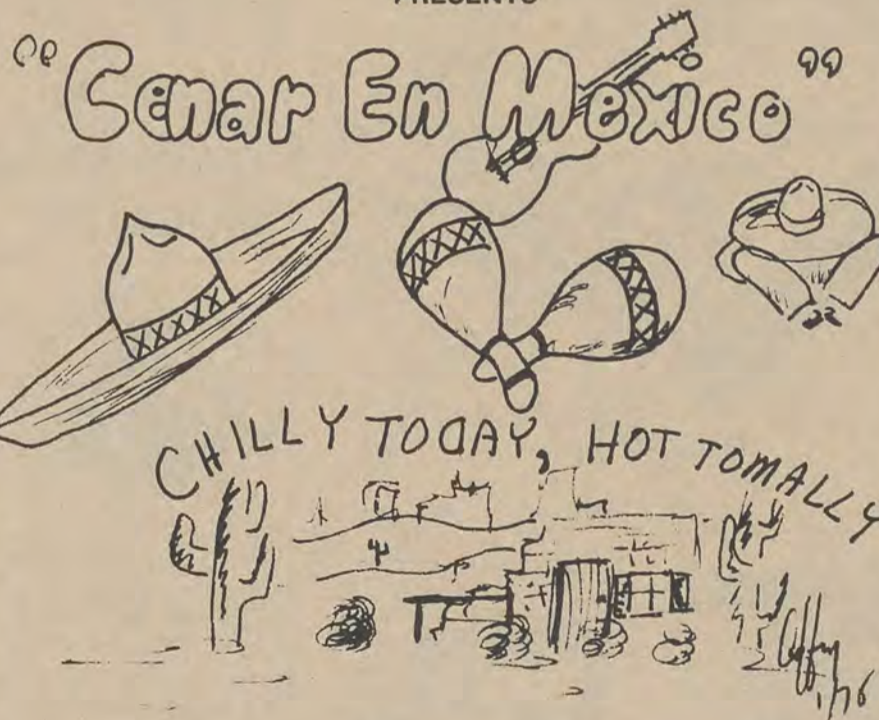 PRESENTS
"Cenar En Mexico"
CHILLY TODAY, HOT TOMALLY
1/76